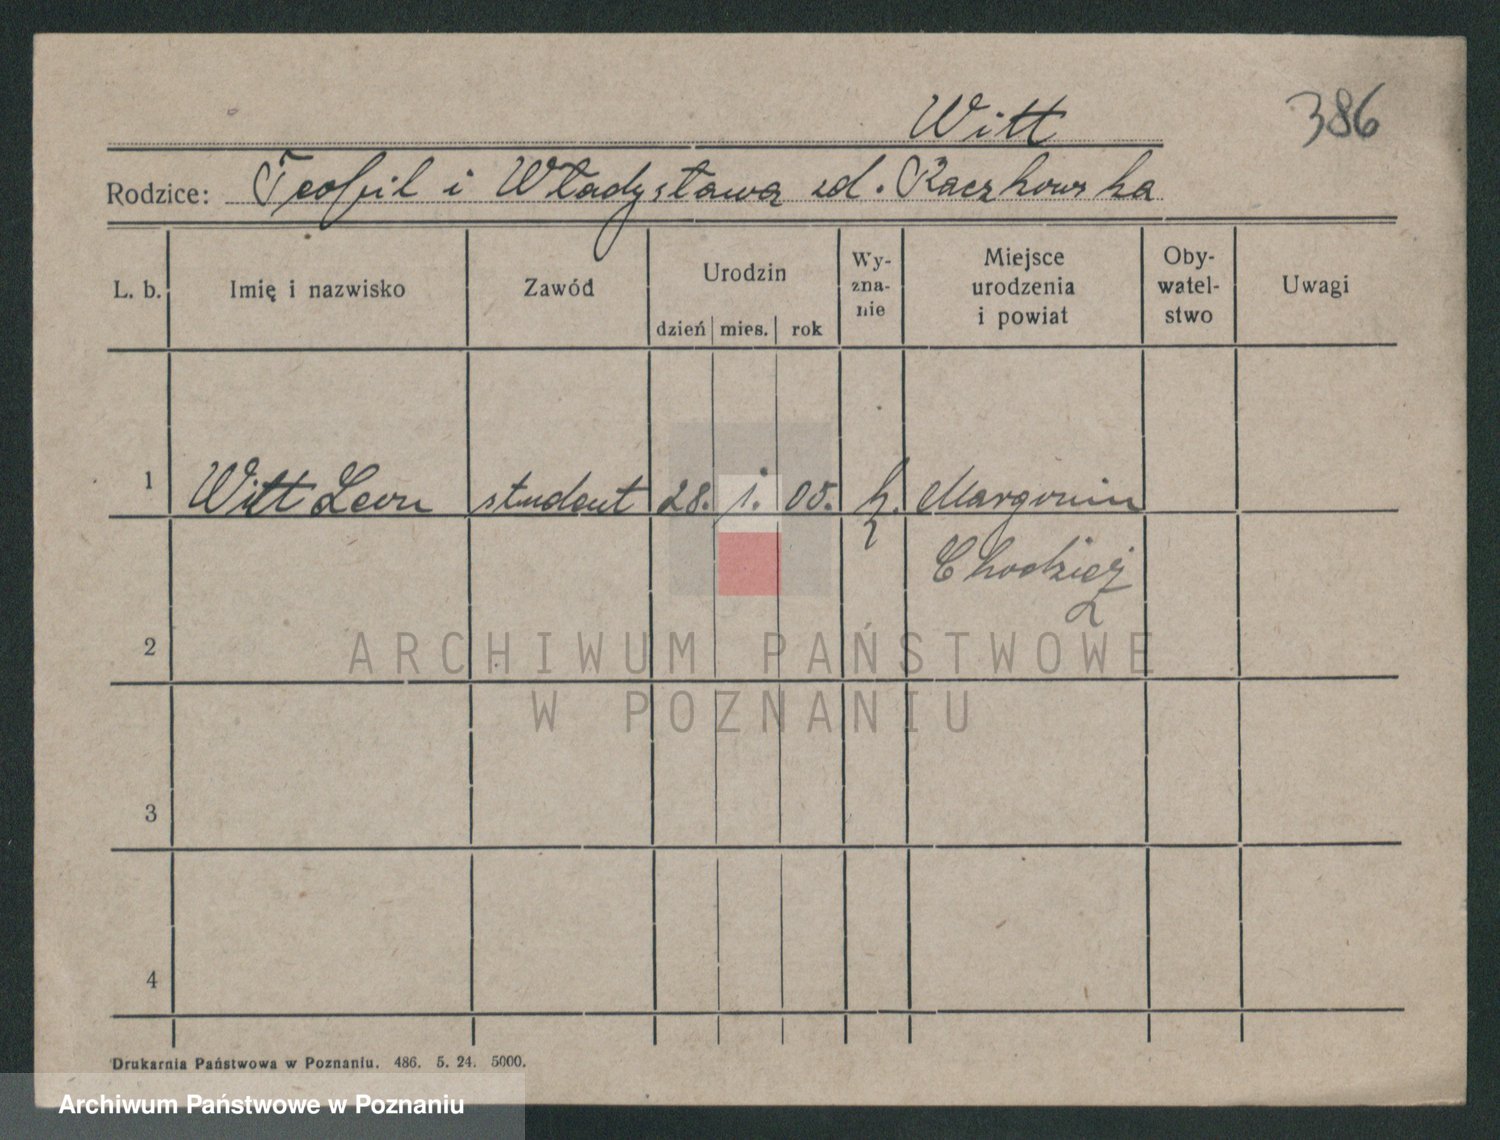 Witt
386
Rodzice: Teofil i Władysława zd. Kaczkowska
L. b.
Imię i nazwisko
Zawód
Urodzin
dzień mies. rok
Wy-
zna-
nie
Miejsce
urodzenia
i powiat
Oby-
watel-
stwo
Uwagi
1 Witt Leon student 28. 1. 05. k. Margonin
Chodzież
2
ARCHIWUM PAŃSTWOWE
W POZNANIU
3
4
Drukarnia Państwowa w Poznaniu. 486. 5. 24. 5000.
Archiwum Państwowe w Poznaniu